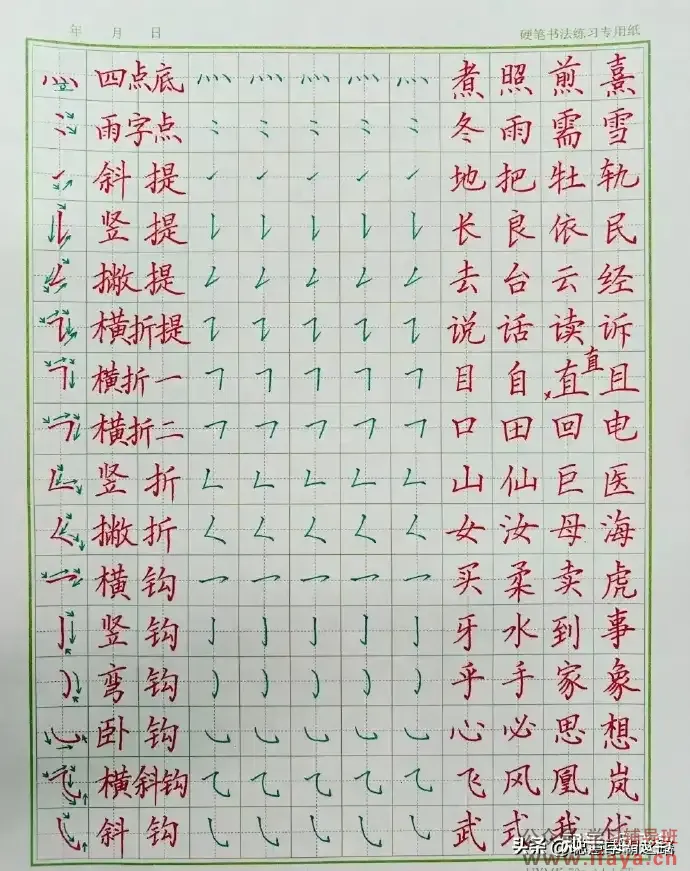 年 月 日 硬笔书法练习专用纸
四点底 煮 照 煎 熹
雨字点 冬 雨 需 雪
斜提 地 把 牡 轨
竖提 长 良 依 民
撇提 去 台 云 经
横折提 说 话 读 诉
横折一 目 自 直 直 且
横折二 口 田 回 电
竖折 山 仙 巨 医
撇折 女 汝 母 海
横钩 买 柔 卖 虎
竖钩 牙 水 到 事
弯钩 乎 手 家 象
卧钩 心 必 思 想
横斜钩 飞 风 凰 岚
斜钩 武 式 我 代
头条
www.ifaya.cn